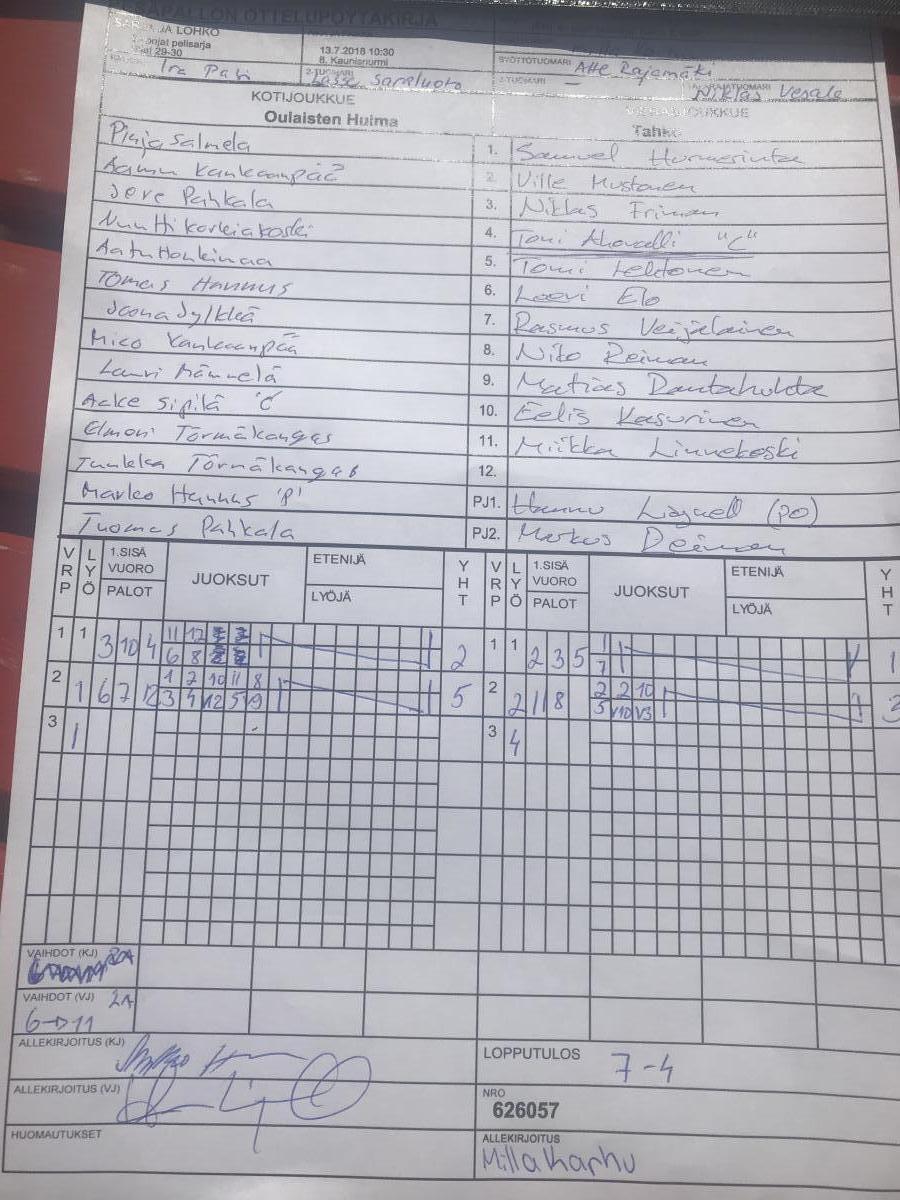 OTTELUPÖYTÄKIRJA
LOHKO
pelisarja
29-30
13.7.2018 10:30
8. Kaunisnurmi
SYÖTTÖTUOMARI Atte Rajamäki
2-TUOMARI
3-TUOMARI —
TAKARAJATUOMARI Niklas Vesala
KOTIJOUKKUE
Oulaisten Huima
JOUKKUE
Tahko
Salmela 1. Samuel
Kankaanpää 2. Ville Mustonen
Jere Pahkala 3. Niklas Friman
4. Toni Ahovalli "C"
Aatu Honkimaa 5. Tomi Lehtonen
Tomas Hannus 6. Leevi Elo
Joona Jylkkä 7. Rasmus Veijalainen
Mico Kankaanpää 8. Niko Reiman
Lauri Mämmelä 9. Matias Rantaholka
Aake Sipilä 'C' 10. Eelis Kasurinen
Elmeri Törmäkangas 11. Miikka Linnakoski
Tuukka Törmäkangas 12.
Marko Hannus 'P' PJ1. Hannu (PO)
Tuomas Pahkala PJ2. Markus Reiman
VRP LYÖ 1.SISÄ VUORO PALOT JUOKSUT ETENIJÄ LYÖJÄ YHT VRP LYÖ 1.SISÄ VUORO PALOT JUOKSUT ETENIJÄ LYÖJÄ YHT
1 1 3 10 4 11 12 2 1 1 2 3 5 1 1
6 8 7
2 1 6 7 12 1 2 10 11 8 5 2 2 11 8 2 2 10 3
3 4 12 5 9 5 V10 V3
3 1 3 4
VAIHDOT (KJ)
VAIHDOT (VJ) 2A
6→11
ALLEKIRJOITUS (KJ)
LOPPUTULOS 7-4
ALLEKIRJOITUS (VJ)
NRO
626057
HUOMAUTUKSET
ALLEKIRJOITUS
Milla Karhu